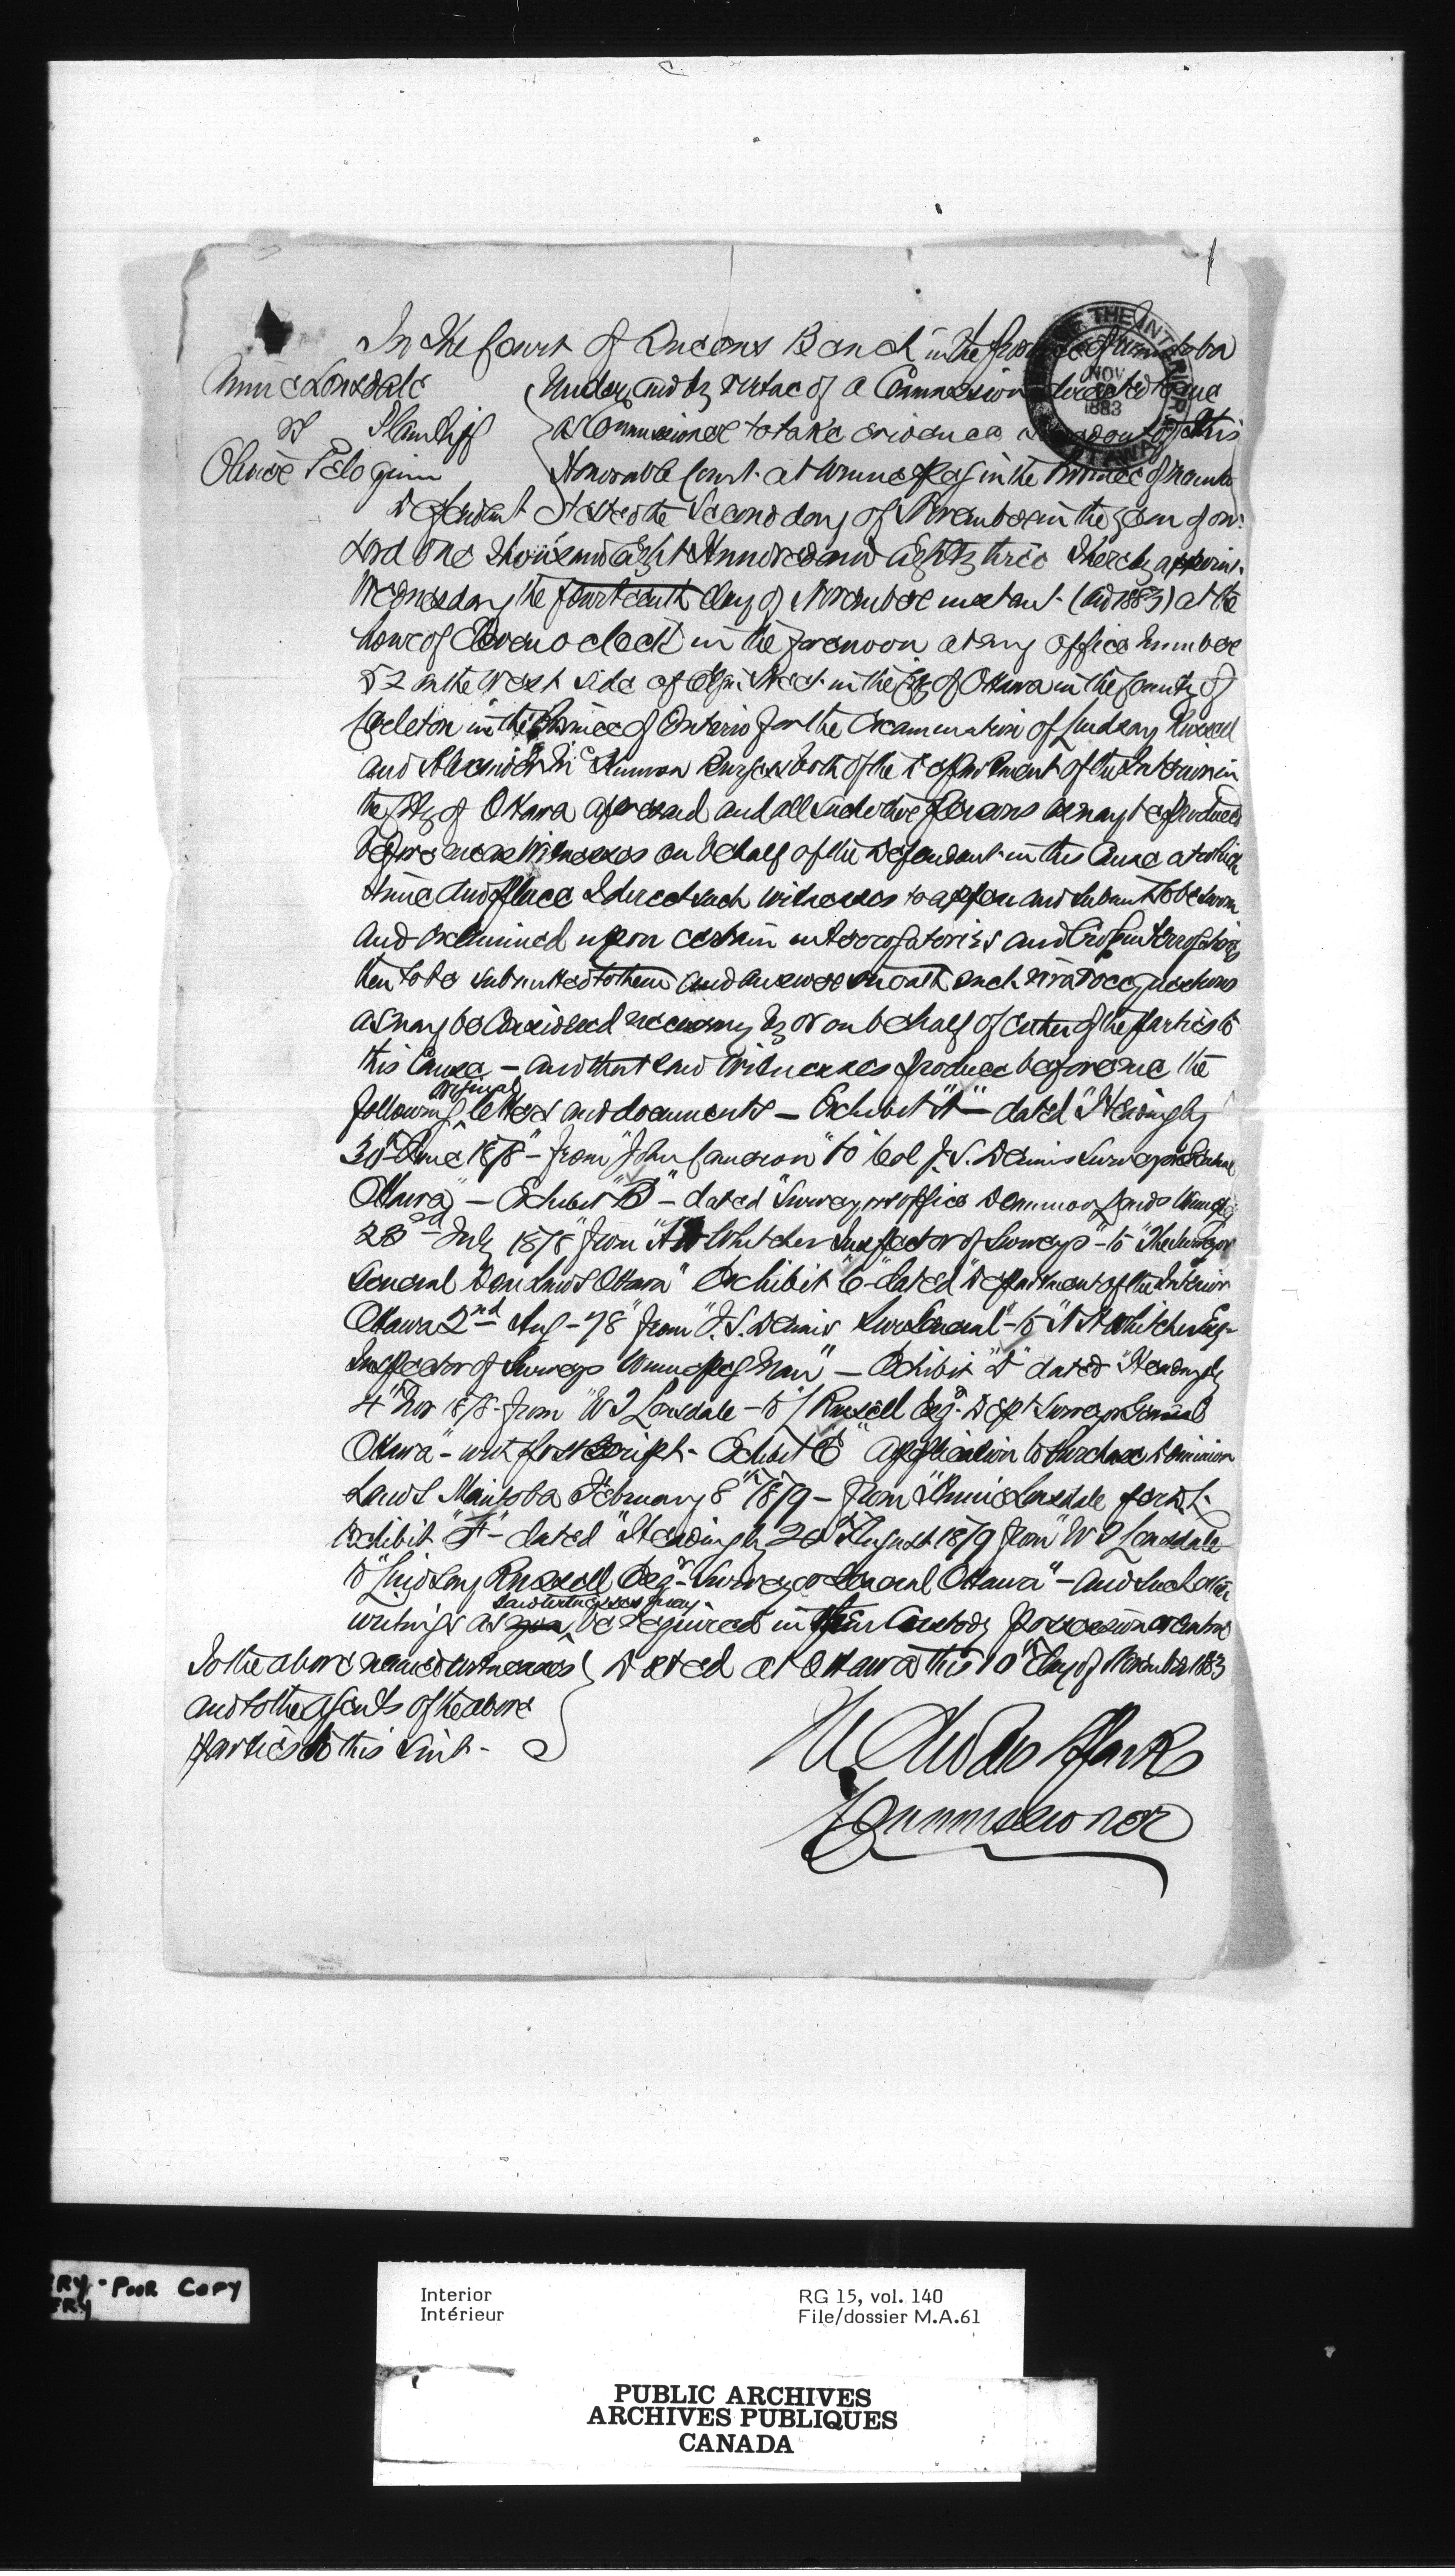 1
In the Court of Queens Bench in the Province of Manitoba
Annie Lonsdale
Plaintiff
vs
Olivier Peloquin
Defendant
Under and by virtue of a Commission directed to me
as Commissioner to take evidence issued out of this
Honorable Court at Winnipeg in the Province of Manitoba
tested the Second day of November in the year of our
Lord One Thousand Eight Hundred and Eighty three I hereby appoint
Wednesday the fourteenth day of November instant (AD 1883) at the
hour of Eleven o clock in the forenoon at my office Number
52 on the West side of Elgin Street in the City of Ottawa in the County of
Carleton in the Province of Ontario for the Examination of Lindsay Russell
and Burgess both of the Department of the Interior in
the City of Ottawa aforesaid and all such other persons as may be produced
before me as Witnesses on behalf of the Defendant in this Cause at which
time and place I direct such witnesses to appear and submit to be sworn
and examined upon certain interrogatories and Cross interrogatories
then to be submitted to them and answer on oath such viva voce questions
as may be Considered necessary by or on behalf of either of the parties to
this Cause – and that said Witnesses produce before me the
following original letters and documents – Exhibit "A" – dated "Headingly
30th June 1878" – from "John Cameron" to "Col J. S. Dennis Surveyor General
Ottawa" – Exhibit "B" – dated "Surveyors office Dominion Lands Winnipeg
23rd July 1878" from "A H Whitcher Inspector of Surveys" – to "The Surveyor
General Dom Lands Ottawa" Exhibit "C" dated "Department of the Interior
Ottawa 2nd Aug – 78" from "J. S. Dennis Sur General" – to "A H Whitcher Esq –
Inspector of Surveys Winnipeg Man" – Exhibit "D" dated "Headingly
4th Nov 1878 – from "W J Lonsdale – to L Russell Esq. Dept Surveyor General
Ottawa" – with postscript – Exhibit "E" application to Purchase Dominion
Lands Manitoba February 8th 1879 – from "Annie Lonsdale
Exhibit "F" – dated "Headingly 20th August 1879 from "W J Lonsdale
to "Lindsay Russell Esqr – Surveyor General Ottawa" – and such other
writings as said witnesses may be required in their Custody possession or control
To the above named witnesses
and to the Agents of the above
parties to this Suit –
Dated at Ottawa this 10th day of November 1883
Commissioner
NOV
1883
RY - POOR COPY
Interior
Intérieur
RG 15, vol. 140
File/dossier M.A.61
PUBLIC ARCHIVES
ARCHIVES PUBLIQUES
CANADA